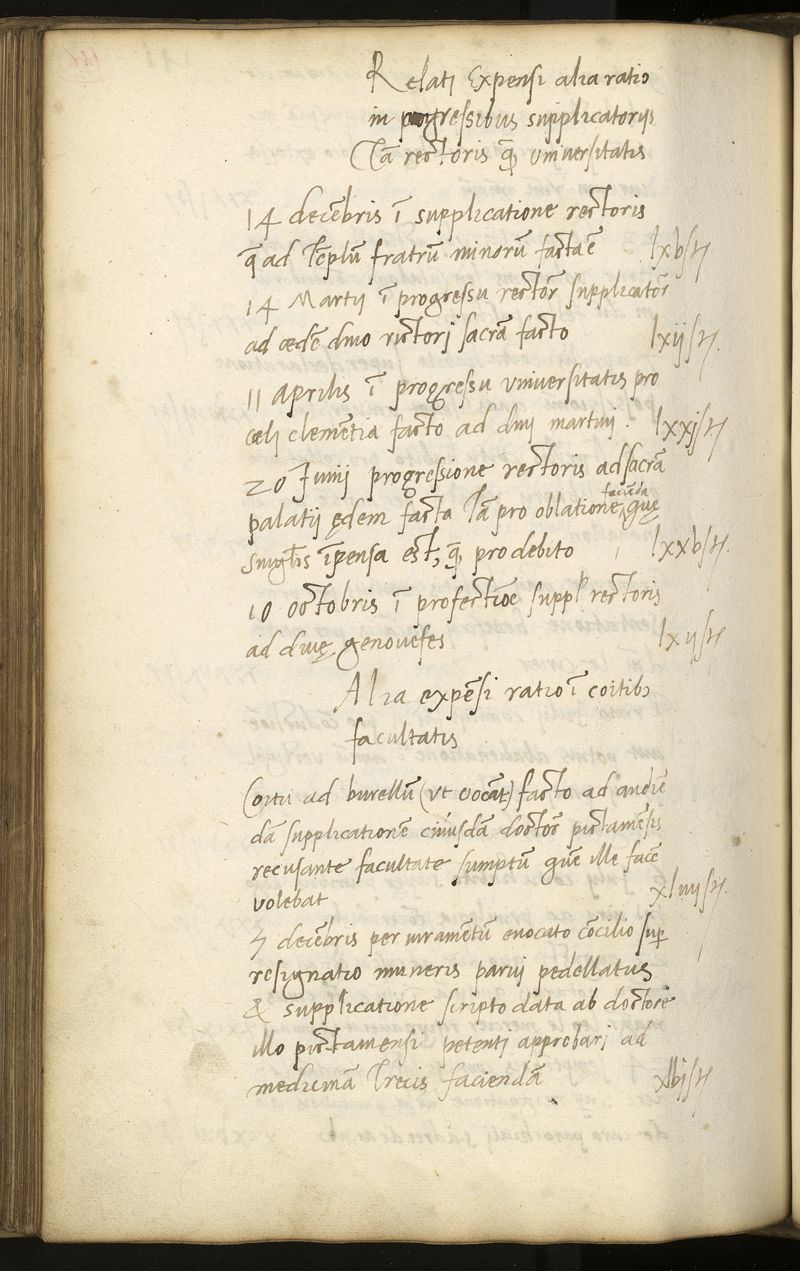 Relati Expensi alia ratio
in progressibus supplicatorijs
Tā rectoris q̄ȝ vniuersitatis
14 decēbris ī supplicatione rectoris
q̄ ad Tēplū fratrū minorū facta ē lxbſtȝ
14 Martij ī progressu rectoř supplicatoř
ad ædē diuo victorj sacrā facto lxijſtȝ.
11 Aprilis ī progressu vniuersitatis pro
cæli clemētia facto ad diuj martinj. lxxjſtȝ
20 Junij progressione rectoris ad sacrā
palatij ędem facta Tā pro oblatione faciēda quę
singlis īpensa est, q̄ȝ pro debito lxxbſtȝ.
10 octobris ī profectiōe suppl rectoris
ad diuę genouefes lxijſtȝ
Alia expēsi ratio ī coitibȝ
facultatis
Coitu ad burellū (vt vocāt) facto ad audiē
dā supplicationē cuiusdā doctoř pictauēsis
recusante facultate sumptū quē ille facē
volebat xliiijſtȝ.
7 decēbris per iuramētū euocato cōcilio sup
resignatio muneris parui pedellatus
& supplicatione scripto data ab doctore
illo pictauensi petentj approbarj ad
medicinā Trecis faciendā xlbjſtȝ